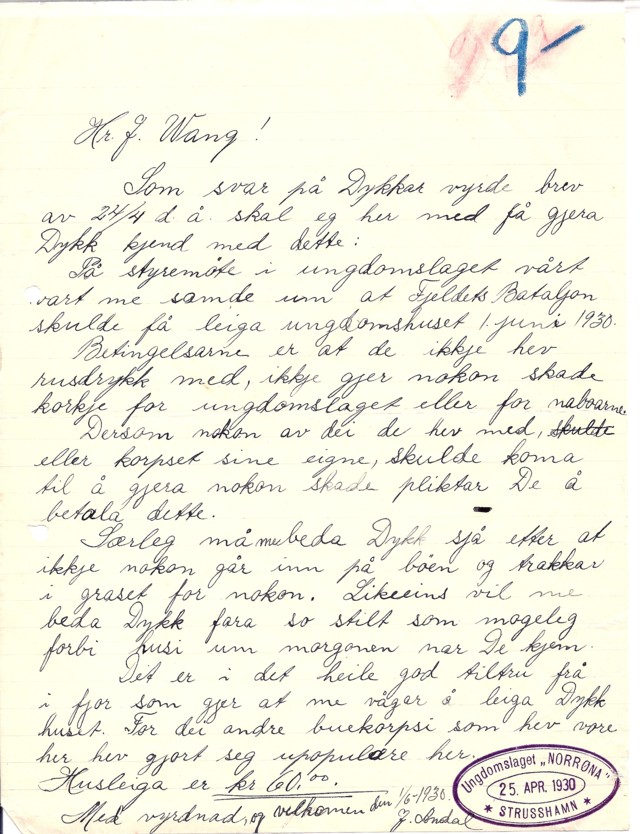 9-
Hr. J. Wang!
Som svar på Dykkar vyrde brev
av 24/4 d. å. skal eg her med få gjera
Dykk kjend med dette:
På styremöte i ungdomslaget vårt
vart me samde um at Fjeldets Bataljon
skulde få leiga ungdomshuset 1. juni 1930.
Betingelsarne er at de ikkje hev
rusdrykk med, ikkje gjer nokon skade
korkje for ungdomslaget eller for naboarne.
Dersom nokon av dei de hev med, skulde
eller korpset sine eigne, skulde koma
til å gjera nokon skade pliktar De å
betala dette.
Særleg må me beda Dykk sjå etter at
ikkje nokon går inn på böen og trakkar
i graset for nokon. Likeeins vil me
beda Dykk fara so stilt som mogeleg
forbi husi um morgonen når De kjem.
Det er i det heile god tiltru frå
i fjor som gjer at me vågar å leiga Dykk
huset. For dei andre buekorpsi som hev vore
her hev gjort seg upopulære her.
Husleiga er kr 60,00.
Med vyrdnad, og velkomen den 1/6-1930.
J. Andal
Ungdomslaget „NORRØNA"
25. APR. 1930
* STRUSSHAMN *